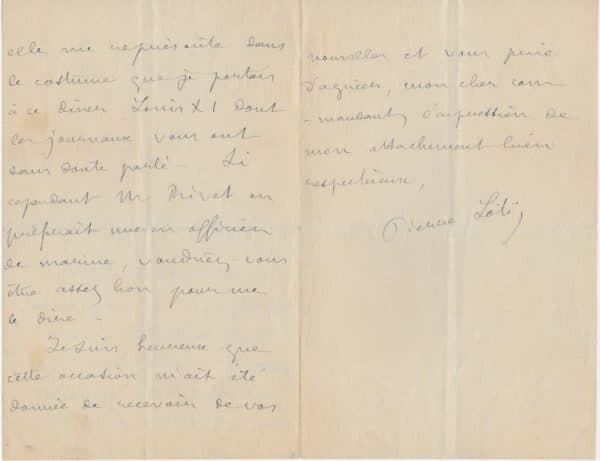 elle me représente dans
le costume que je portais
à ce dîner Louis XI dont
les journaux vous ont
sans doute parlé - Si
cependant Mr Privet en
préférait une en officier
de marine, voudriez vous
être assez bon pour me
le dire -
Je suis heureux que
cette occasion m'ait été
donnée de recevoir de vos
nouvelles et vous prie
d'agréer, mon cher com
-mandant, l'expression de
mon attachement bien
respectueux,
Pierre Loti